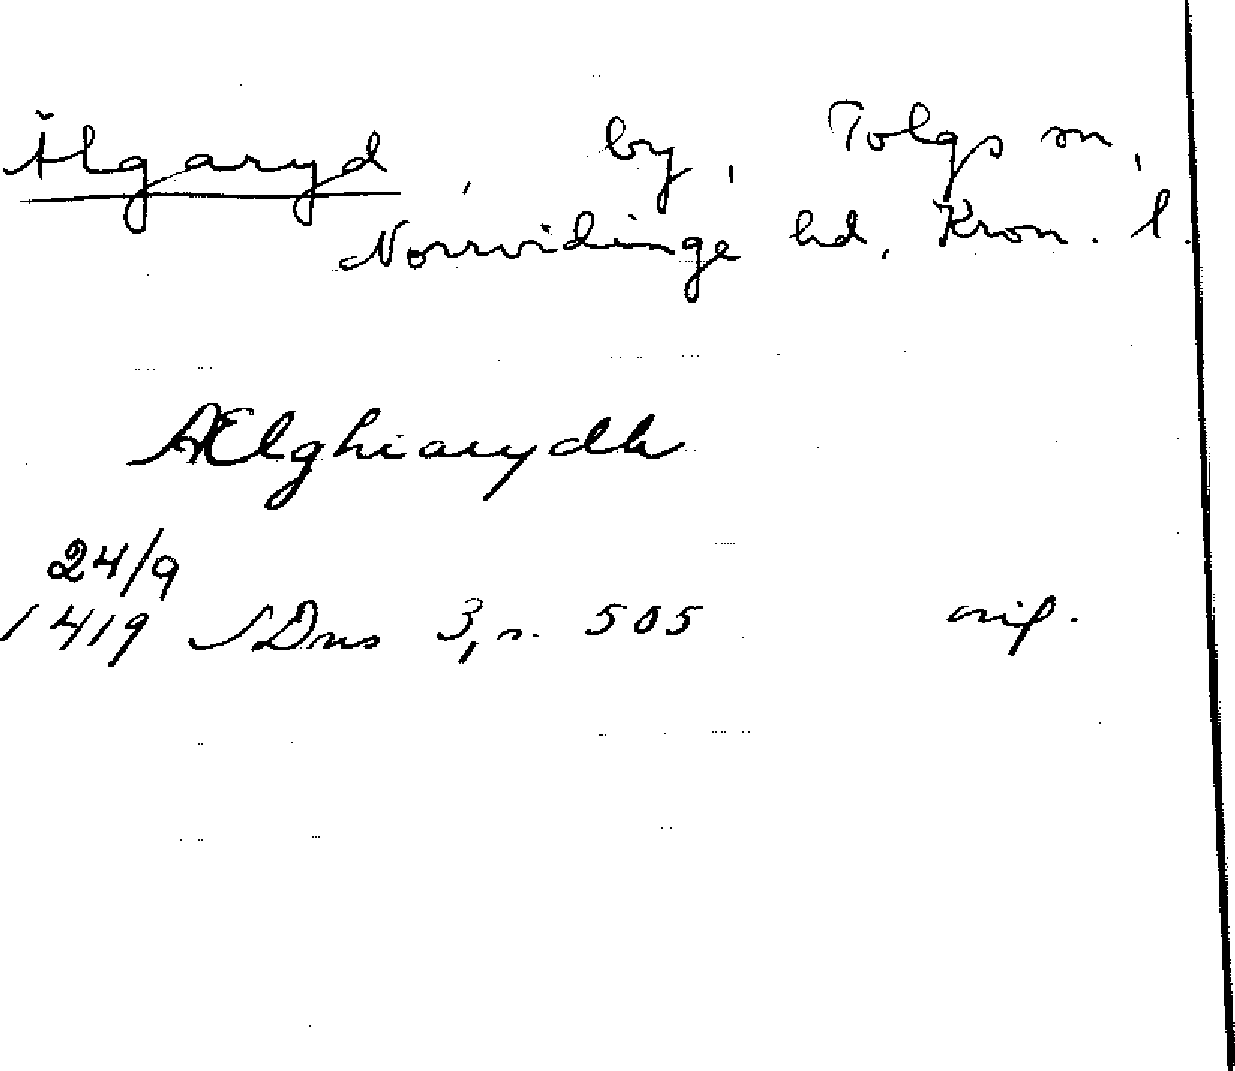 Älgaryd, by, Tolgs sn,
Norrvidinge hd, Kron. l.
Ælghiarydh
24/9
1419 SDns 3, s. 505 orig.